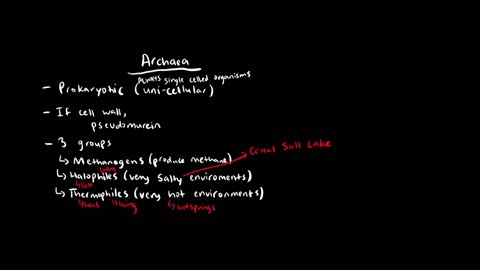 Archaea
always single celled organisms
- Prokaryotic (uni-cellular)
- If cell wall,
pseudomurein
- 3 groups
↳ Methanogens (produce methane)
Great Salt Lake
loving
↳ Halophiles (very salty enviroments)
↳ salt
↳ Thermophiles (very hot environments)
↳ heat ↳ loving ↳ hotsprings